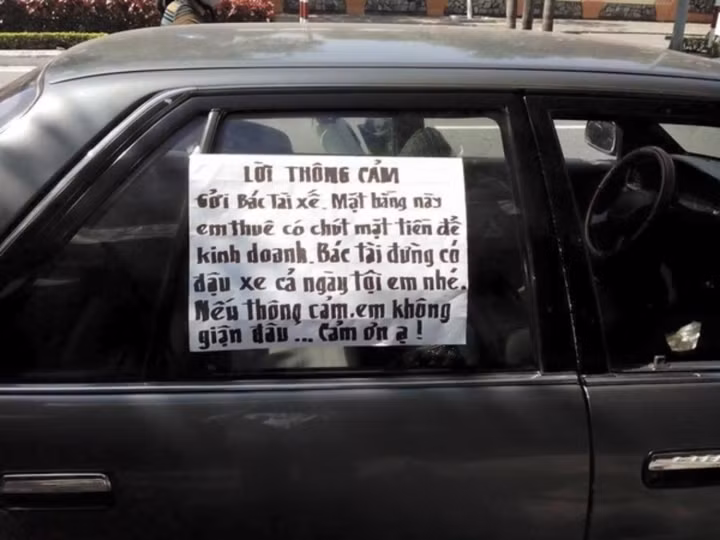 LỜI THÔNG CẢM
Gửi Bác Tài xế. Mặt bằng này
em thuê có chút mặt tiền để
kinh doanh. Bác tài đừng có
đậu xe cả ngày tội em nhé.
Nếu thông cảm.em không
giận đâu... Cảm ơn ạ!